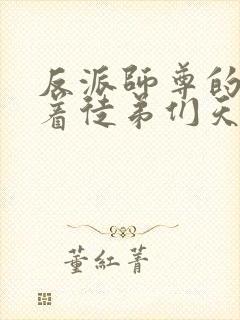 反派師尊的
着徒弟们天
董紅菁